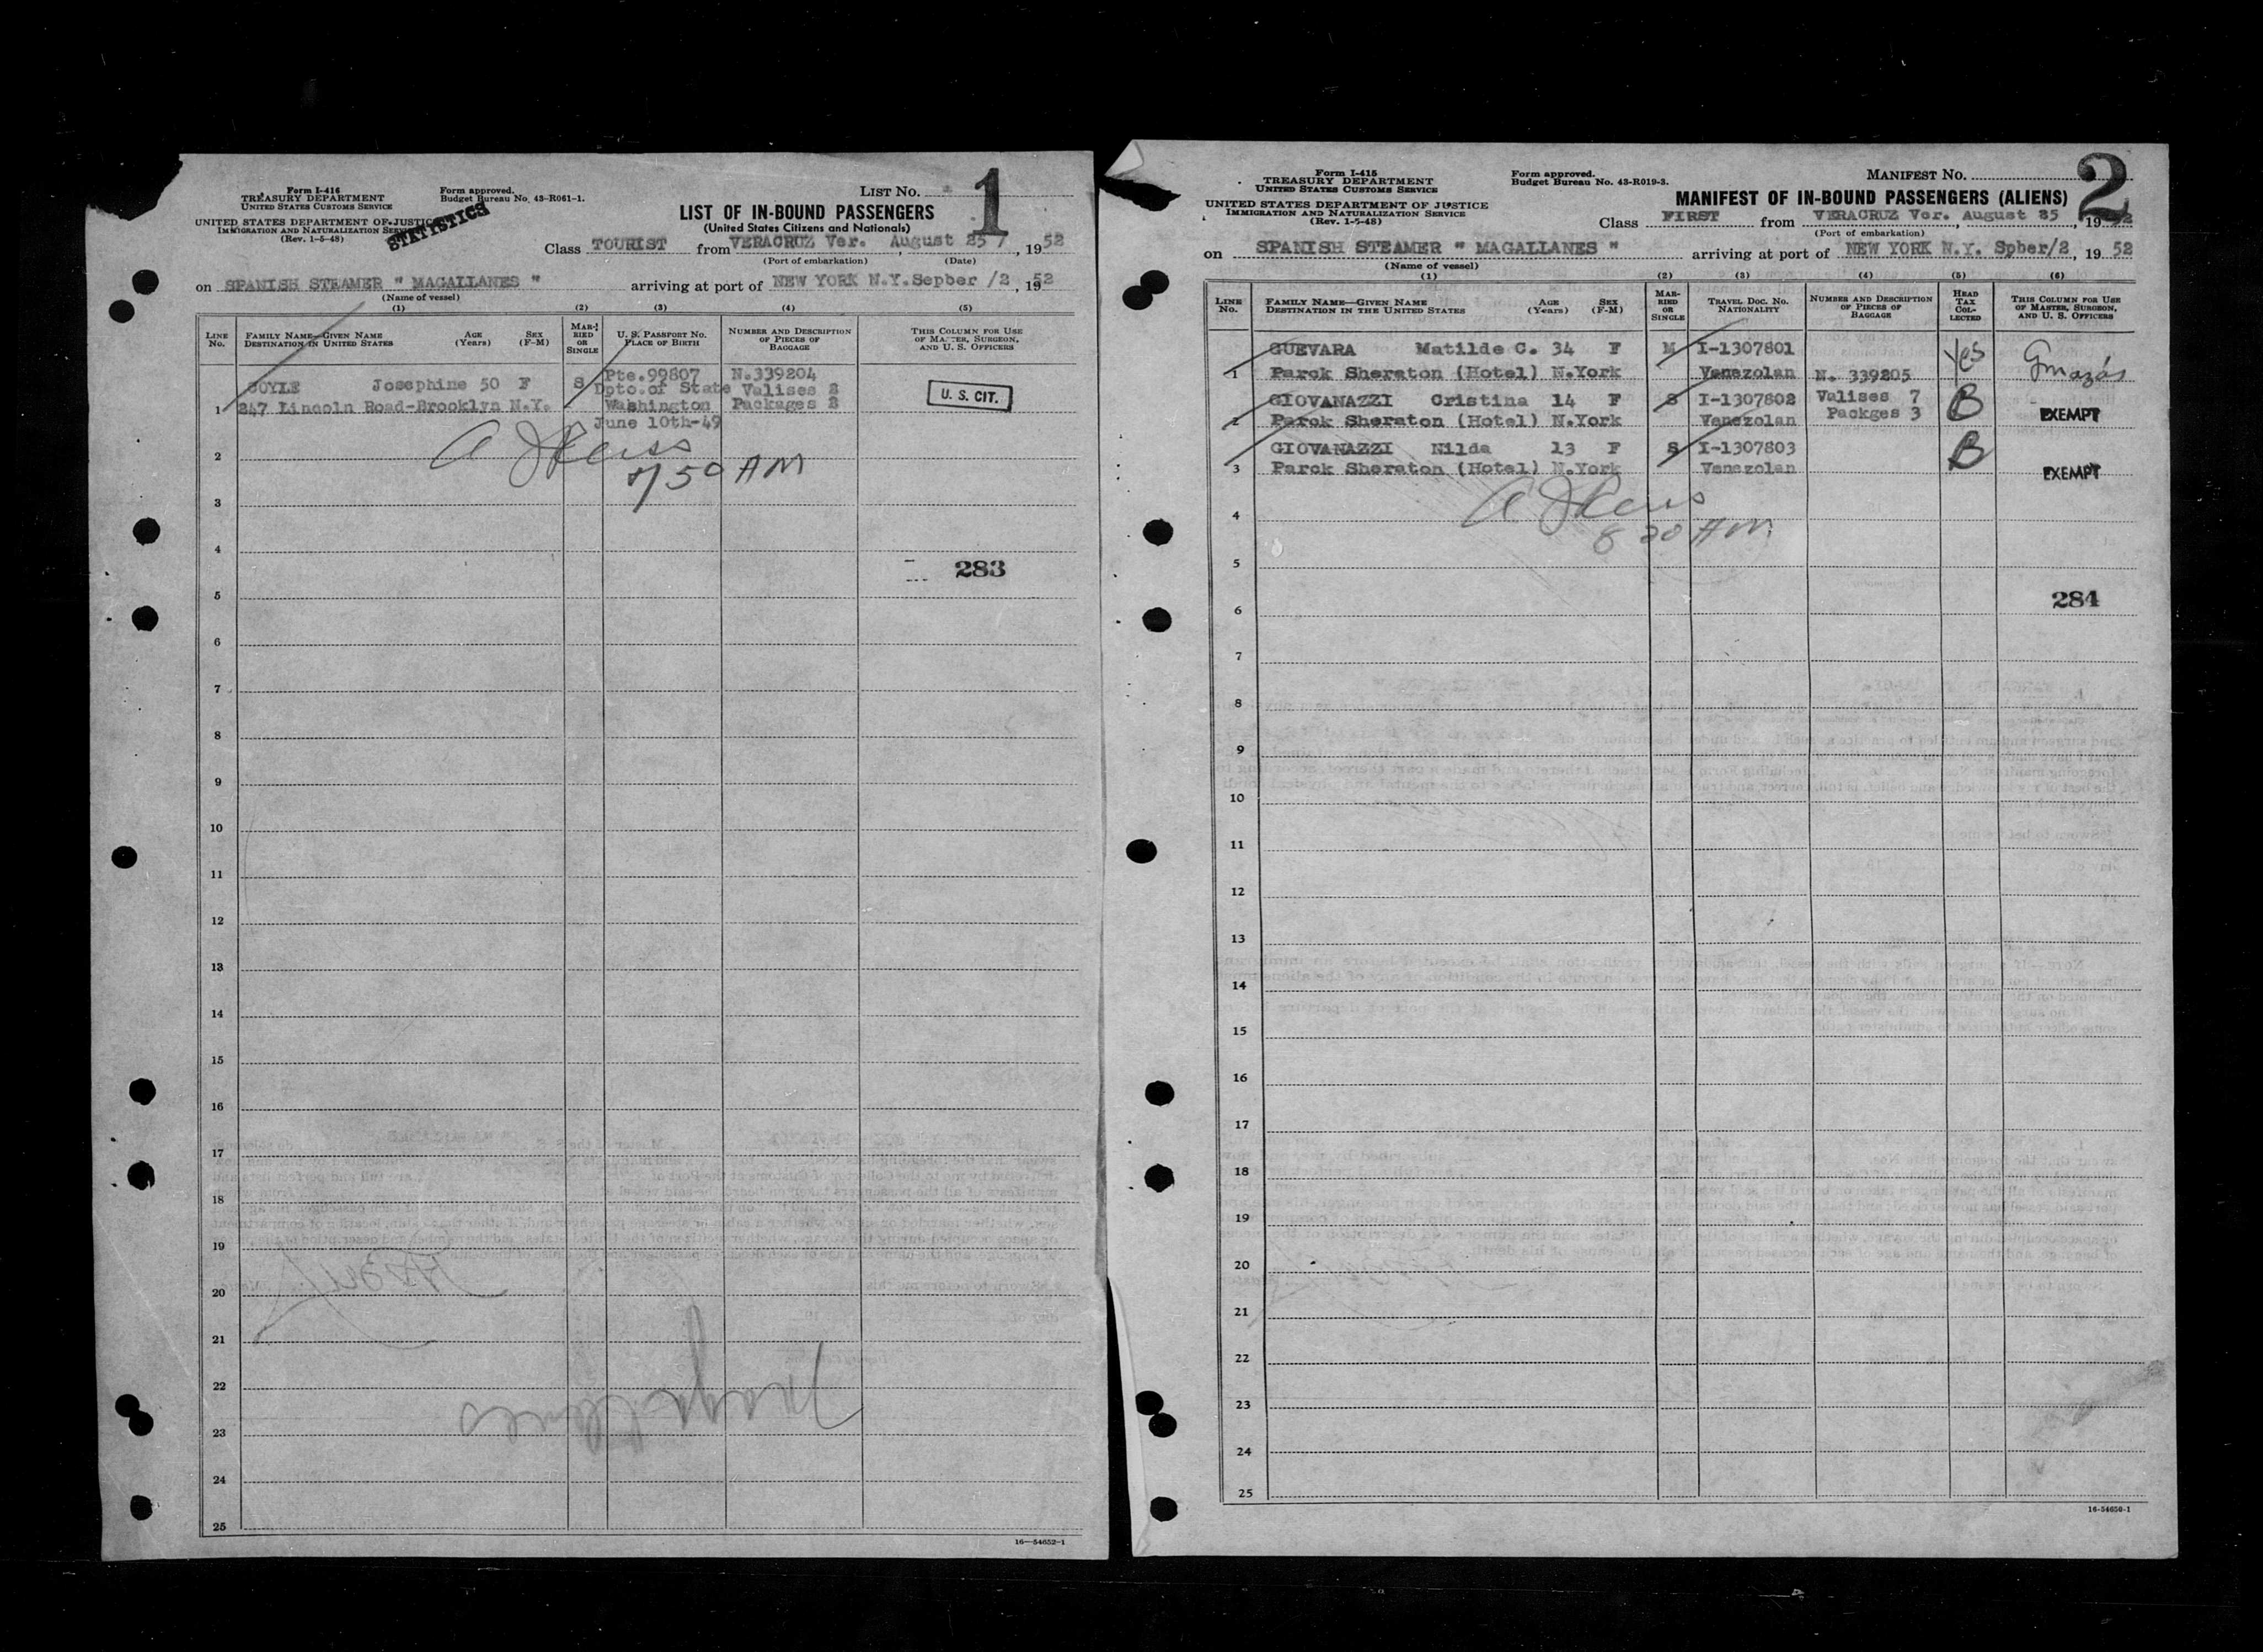 Form I-416
TREASURY DEPARTMENT
UNITED STATES CUSTOMS SERVICE
UNITED STATES DEPARTMENT OF JUSTICE
IMMIGRATION AND NATURALIZATION SERVICE
(Rev. 1-5-48)
STATISTICS
Form approved.
Budget Bureau No. 43-R061-1.
LIST NO.
1
LIST OF IN-BOUND PASSENGERS
(United States Citizens and Nationals)
Class TOURIST from VERACRUZ Ver. August 25 /, 1952
(Port of embarkation) (Date)
on SPANISH STEAMER " MAGALLANES " arriving at port of NEW YORK N.Y. Sepber /2, 1952
(Name of vessel)
(1) (2) (3) (4) (5)
LINE NO.
FAMILY NAME—GIVEN NAME AGE (Years) SEX (F-M)
DESTINATION IN UNITED STATES
MARRIED OR SINGLE
U. S. PASSPORT NO.
PLACE OF BIRTH
NUMBER AND DESCRIPTION OF PIECES OF BAGGAGE
THIS COLUMN FOR USE OF MASTER, SURGEON, AND U. S. OFFICERS
Josephine 50 F S Pte.99807 N.339204
Dpto.of State Valises 2
1 247 Lincoln Road-Brooklyn N.Y. Washington Packages 2
June 10th-49
U. S. CIT.
2
7 50 AM
3
4
283
5
6
7
8
9
10
11
12
13
14
15
16
17
18
19
20
21
22
23
24
25
16—54652-1
Form I-415
TREASURY DEPARTMENT
UNITED STATES CUSTOMS SERVICE
UNITED STATES DEPARTMENT OF JUSTICE
IMMIGRATION AND NATURALIZATION SERVICE
(Rev. 1-5-48)
Form approved.
Budget Bureau No. 43-R019-3.
MANIFEST NO.
2
MANIFEST OF IN-BOUND PASSENGERS (ALIENS)
Class FIRST from VERACRUZ Ver. August 25, 1952
(Port of embarkation)
on SPANISH STEAMER " MAGALLANES " arriving at port of NEW YORK N.Y. Spber/2, 1952
(Name of vessel)
(1) (2) (3) (4) (5) (6)
LINE NO.
FAMILY NAME—GIVEN NAME AGE (Years) SEX (F-M)
DESTINATION IN THE UNITED STATES
MARRIED OR SINGLE
TRAVEL DOC. NO.
NATIONALITY
NUMBER AND DESCRIPTION OF PIECES OF BAGGAGE
HEAD TAX COLLECTED
THIS COLUMN FOR USE OF MASTER, SURGEON, AND U. S. OFFICERS
GUEVARA Matilde C. 34 F M I-1307801 Yes
1 Parck Sheraton (Hotel) N.York Venezolan N. 339205
GIOVANAZZI Cristina 14 F S I-1307802 Valises 7 B
2 Parck Sheraton (Hotel) N.York Venezolan Packges 3 EXEMPT
GIOVANAZZI Nilda 13 F S I-1307803 B
3 Parck Sheraton (Hotel) N.York Venezolan EXEMPT
4
8 30 AM
5
284
6
7
8
9
10
11
12
13
14
15
16
17
18
19
20
21
22
23
24
25
16-54650-1